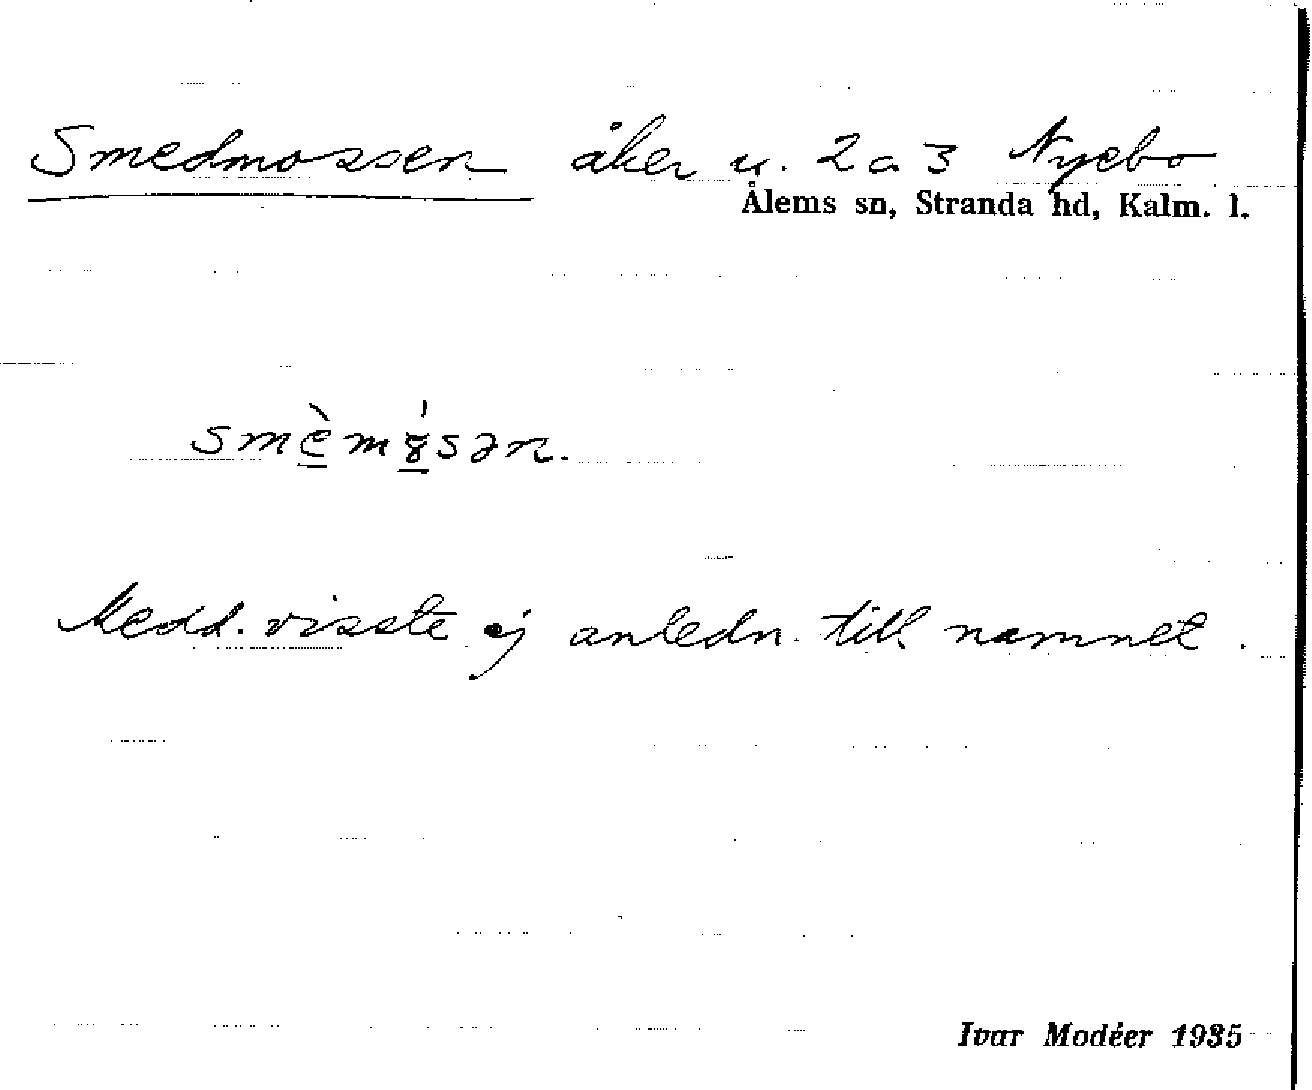 Smedmossen åker u. 2a3 Nyebo
Ålems sn, Stranda hd, Kalm. l.
Medd. visste ej anledn. till namnet.
Ivar Modéer 1935